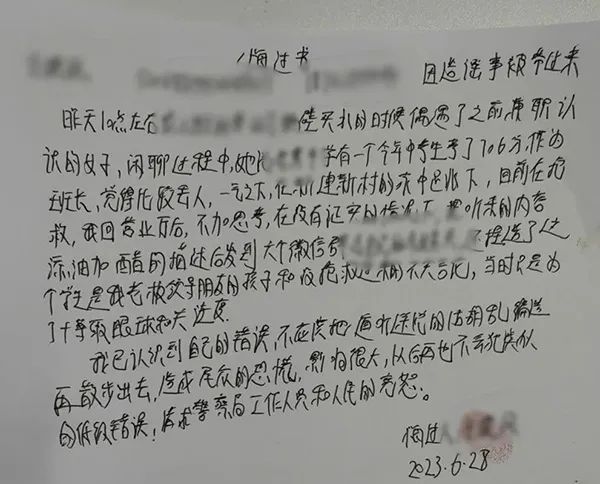 悔过书
因造谣事被带过来
昨天10点左右 的时候偶遇了之前兼职认
识的女子,闲聊过程中,她 学有一个今年中考生考了706分,作为
班长,觉得比较丢人,一气之下,在 建新村的家中 下,目前在抢
救,我回营业厅后,不加思考,在没有证实的情况下 听来的内容
添油加醋的描述后发到大个微信 捏造了这
个学生是我老板 朋友的孩子和 抢救 当时只是为
了博取眼球和关注度
我已认识到自己的错误,不应该把道听途说的 乱编造
再散步出去,造成民众的恐慌,影响很大,以后再也不会犯类似
的低级错误,请求警察局工作人员和人民的宽恕。
悔过人
2023.6.28